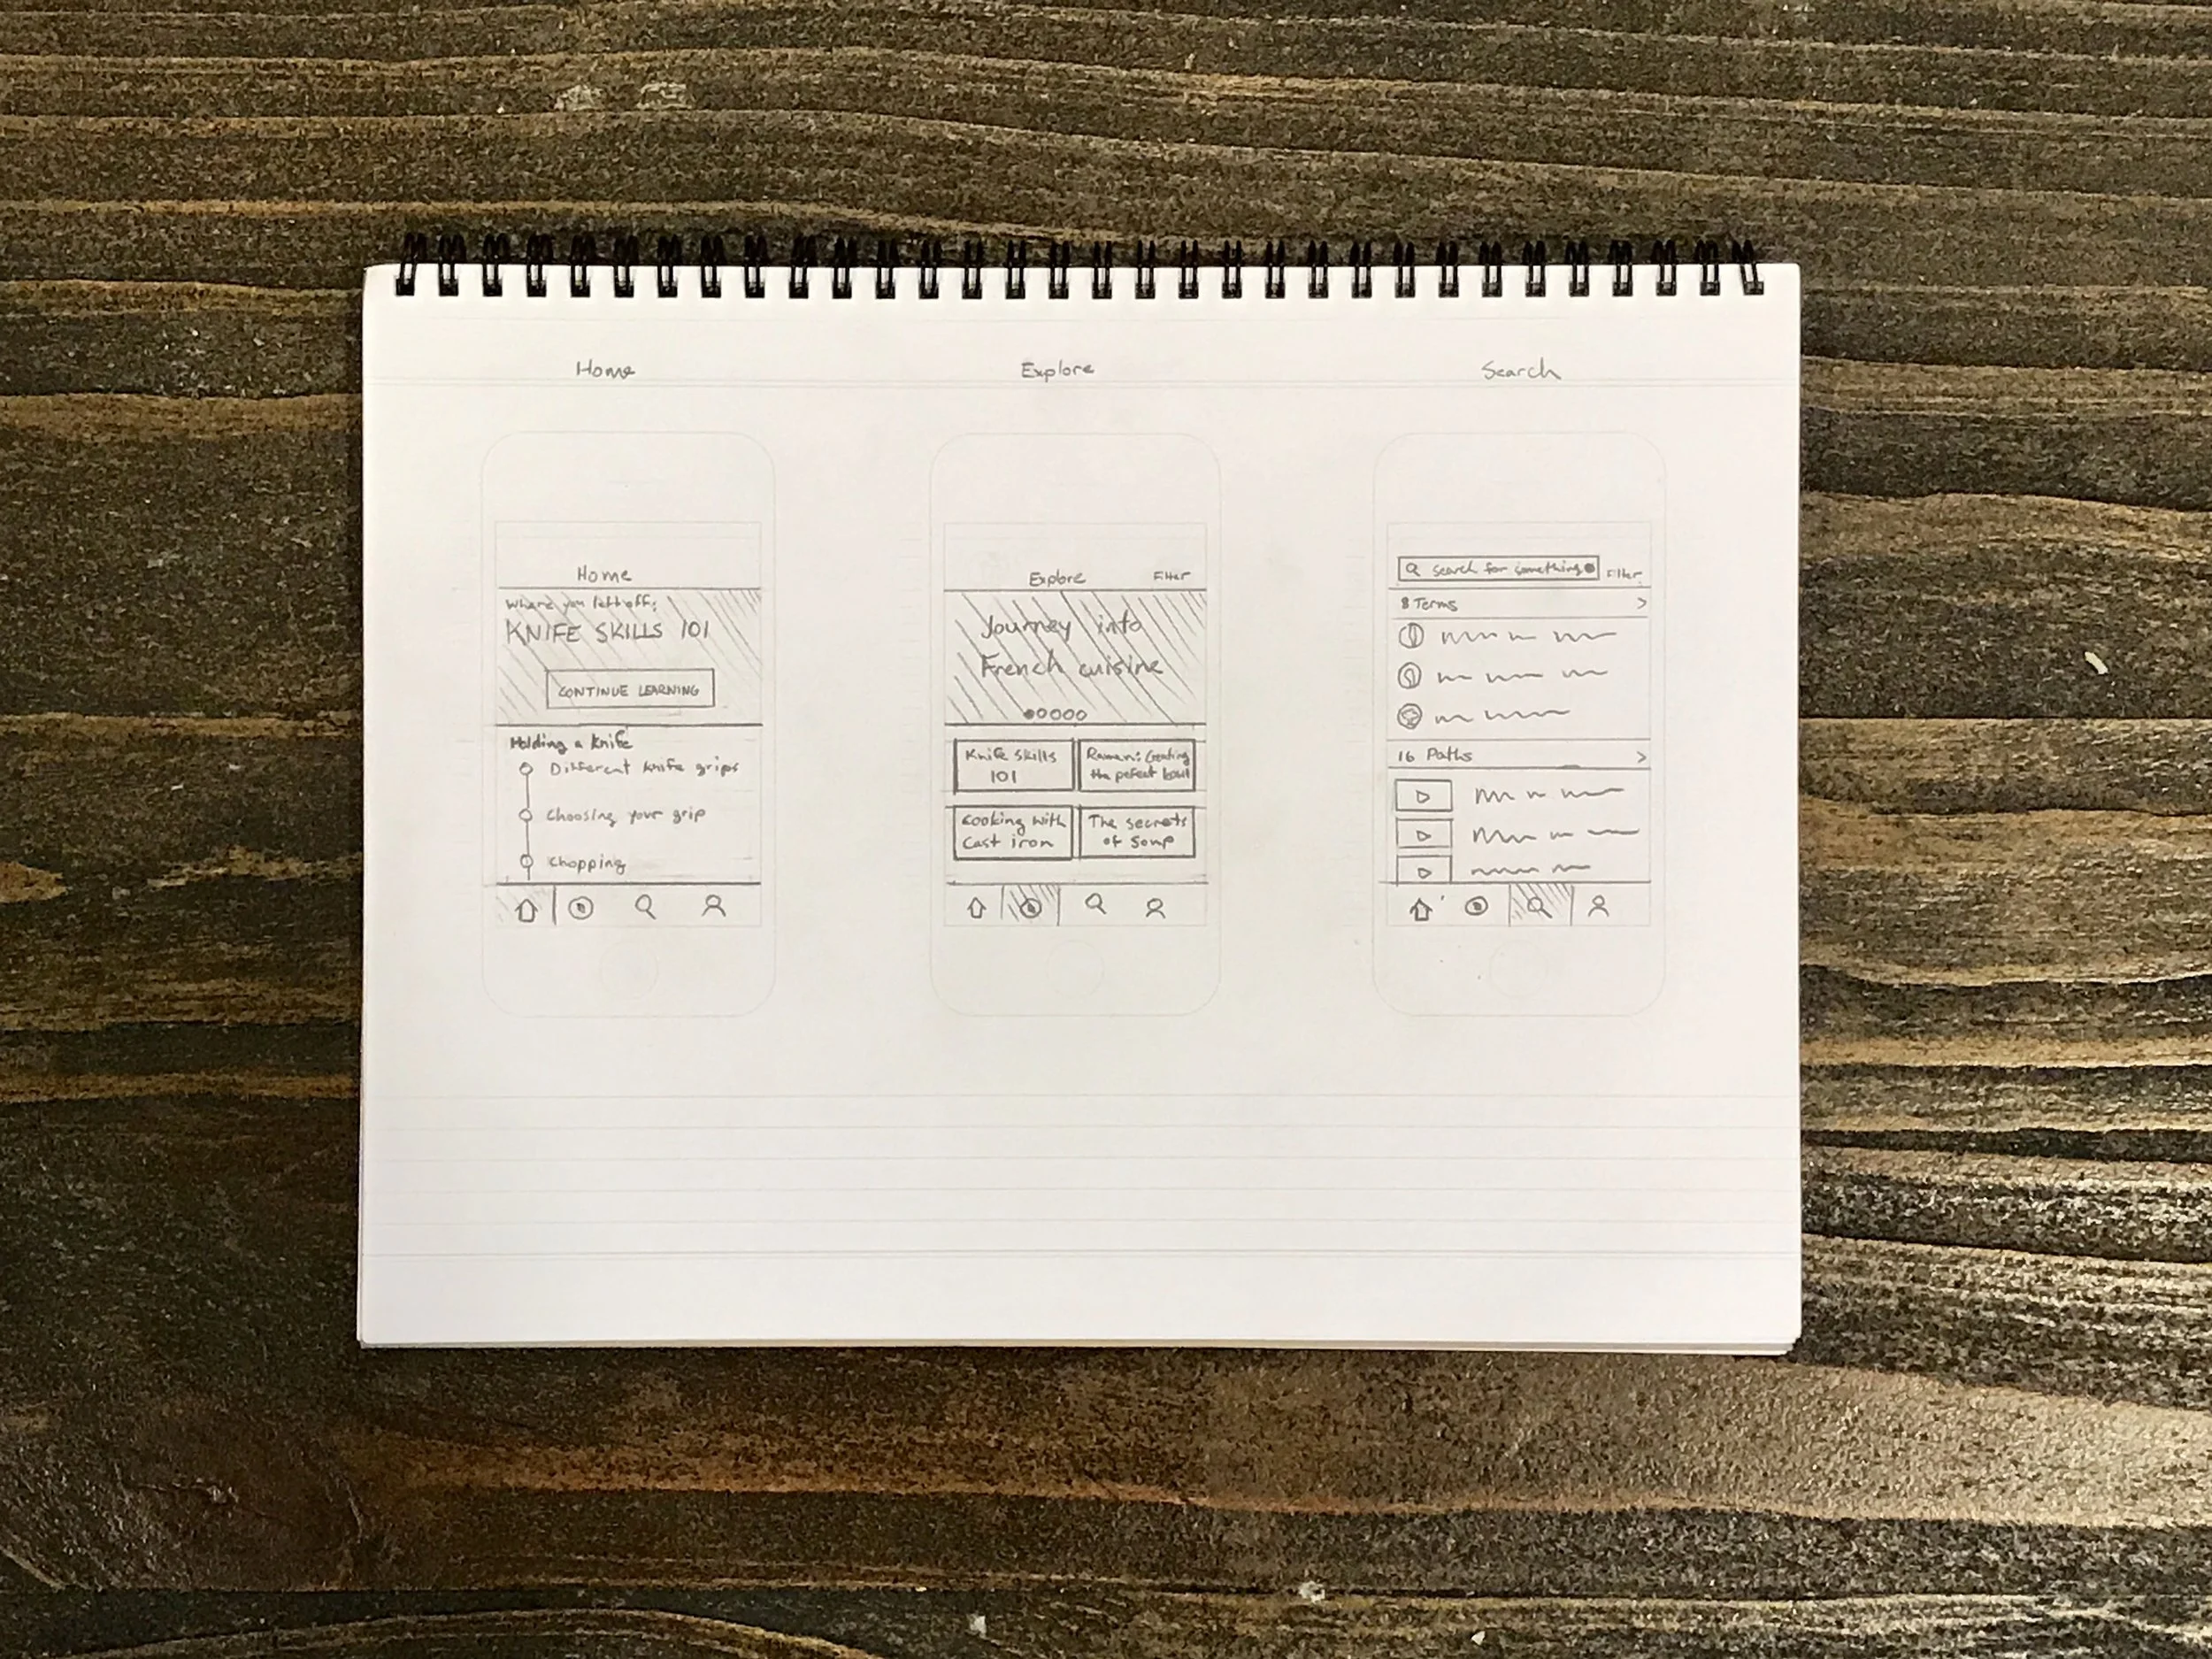 Home
Explore
Search
Home
Where you left off:
KNIFE SKILLS 101
CONTINUE LEARNING
Holding a knife
Different knife grips
Choosing your grip
Chopping
Explore
Filter
Journey into
French cuisine
Knife Skills
101
Ramen: Creating
the pefect bowl
Cooking with
Cast iron
The secrets
of Soup
search for something
Filter
8 Terms
16 Paths